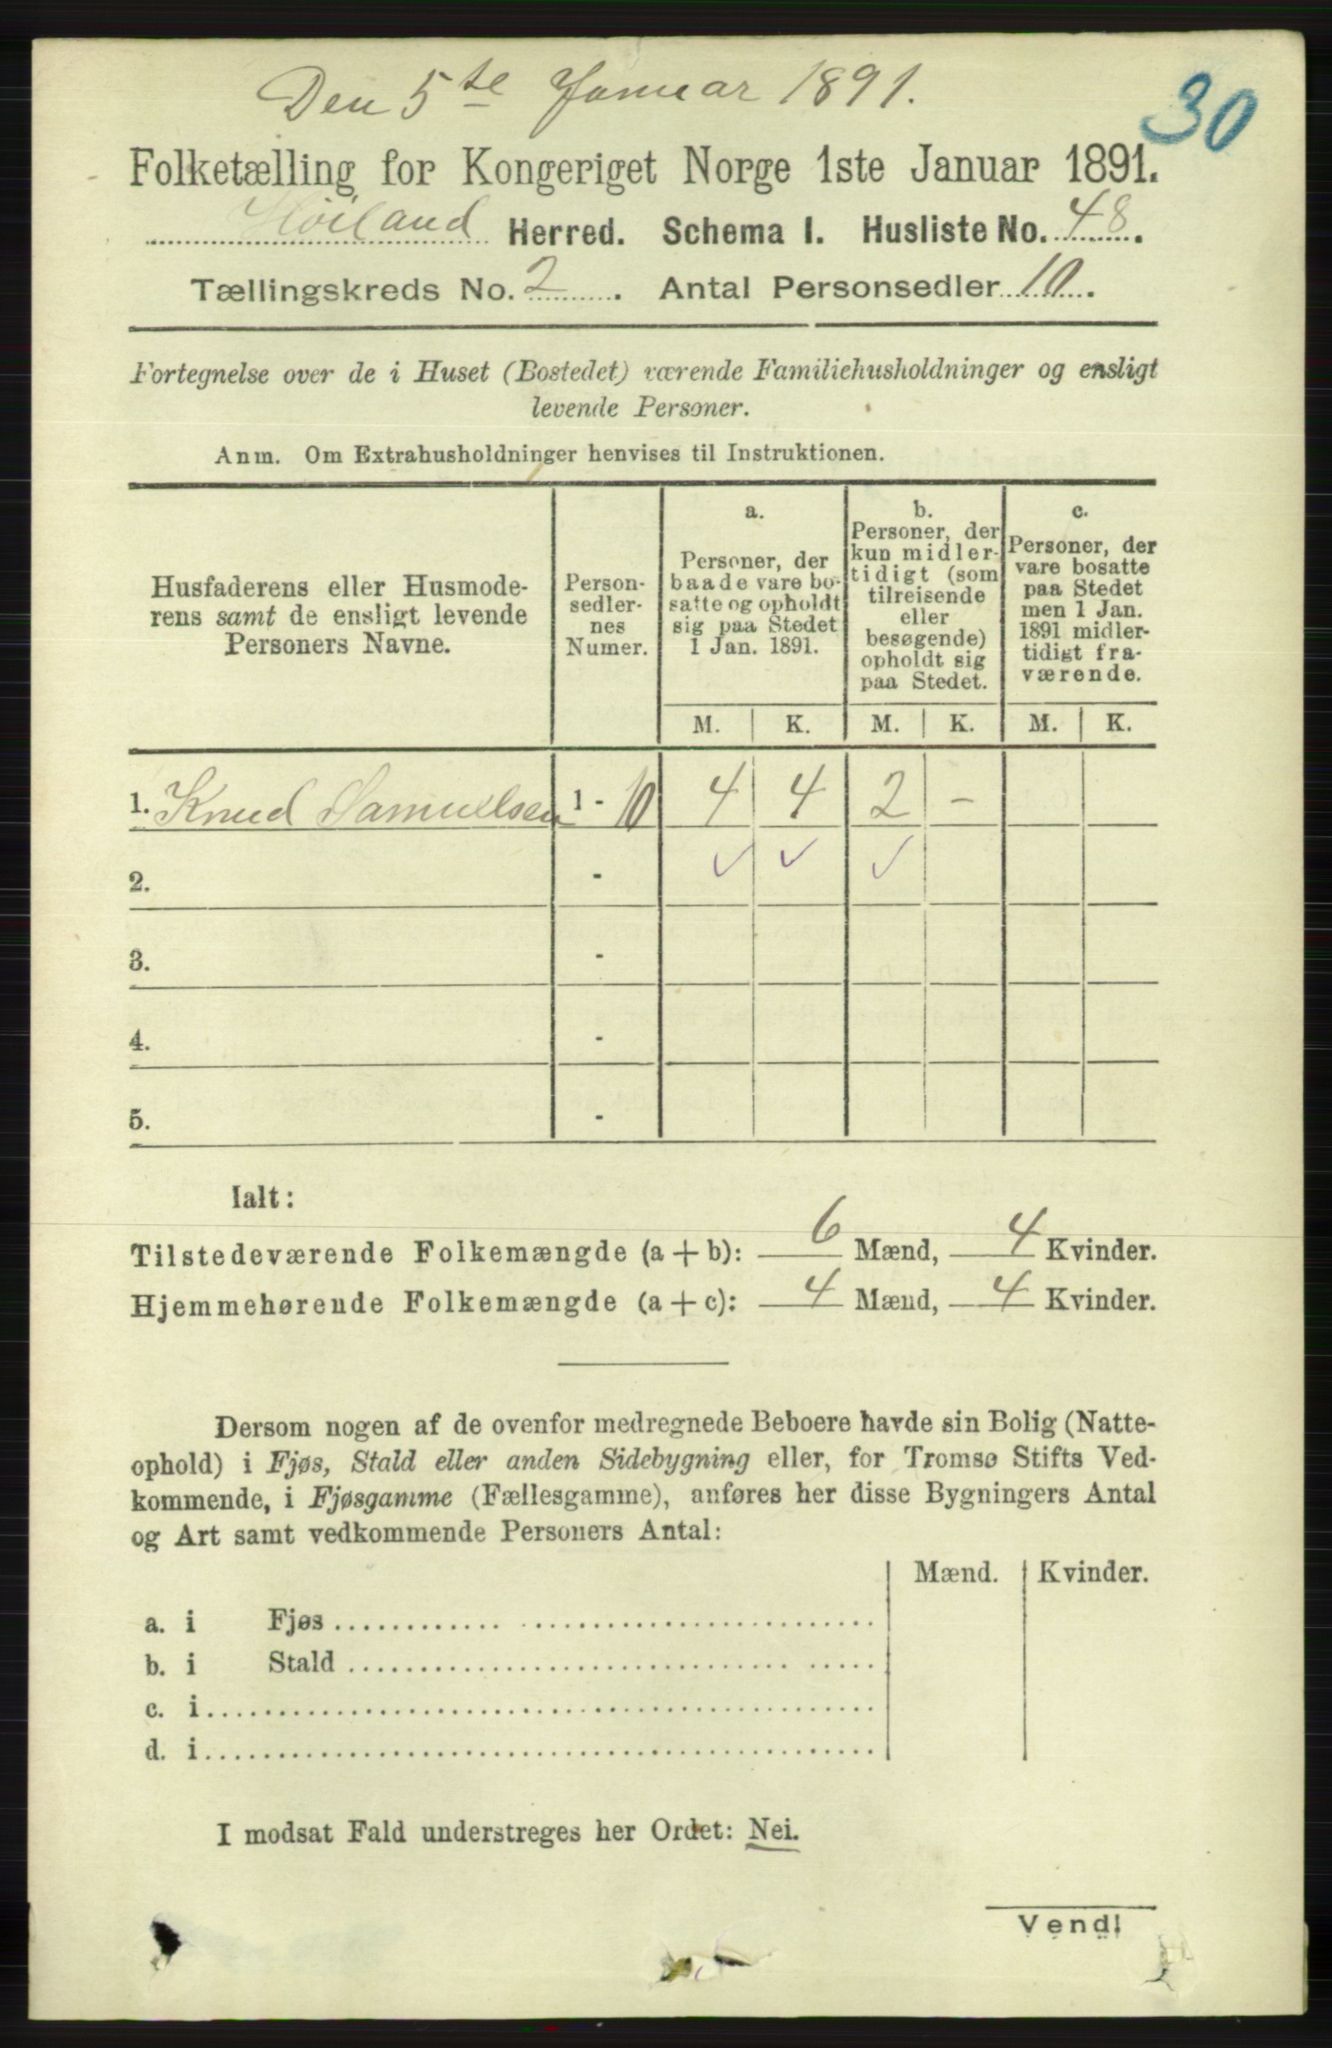 Den 5te Januar 1891.
30
Folketælling for Kongeriget Norge 1ste Januar 1891.
Høiland Herred. Schema I. Husliste No. 48.
Tællingskreds No. 2. Antal Personsedler 10.
Fortegnelse over de i Huset (Bostedet) værende Familiehusholdninger og ensligt
levende Personer.
Anm. Om Extrahusholdninger henvises til Instruktionen.
Husfaderens eller Husmode-
rens samt de ensligt levende
Personers Navne.
Person-
sedler-
nes
Numer.
a.
Personer, der
baade vare bo-
satte og opholdt
sig paa Stedet
1 Jan. 1891.
b.
Personer, der
kun midler-
tidigt (som
tilreisende
eller
besøgende)
opholdt sig
paa Stedet.
c.
Personer, der
vare bosatte
paa Stedet
men 1 Jan.
1891 midler-
tidigt fra-
værende.
M. K. M. K. M. K.
1. Knud Samuelsen 1 - 10 4 4 2 -
2. - ✓ ✓ ✓
3. -
4. -
5. -
Ialt:
Tilstedeværende Folkemængde (a + b): 6 Mænd, 4 Kvinder.
Hjemmehørende Folkemængde (a + c): 4 Mænd, 4 Kvinder.
Dersom nogen af de ovenfor medregnede Beboere havde sin Bolig (Natte-
ophold) i Fjøs, Stald eller anden Sidebygning eller, for Tromsø Stifts Ved-
kommende, i Fjøsgamme (Fællesgamme), anføres her disse Bygningers Antal
og Art samt vedkommende Personers Antal:
Mænd. Kvinder.
a. i Fjøs
b. i Stald
c. i
d. i
I modsat Fald understreges her Ordet: Nei.
Vend!